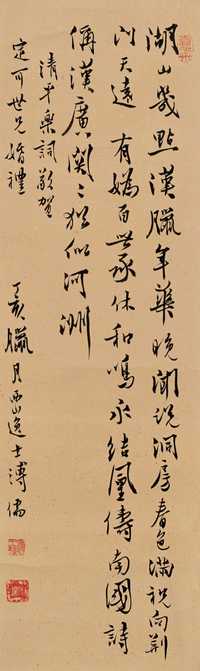 湖山幾點漢臘年華晚聞說洞房春色滿祝向荆
門天遠有媯百世承休和鳴永結鳳儔南國詩
侢漢廣關〻猶似河洲
清平樂詞敬賀
定可世兄婚禮
丁亥臘月西山逸士溥儒